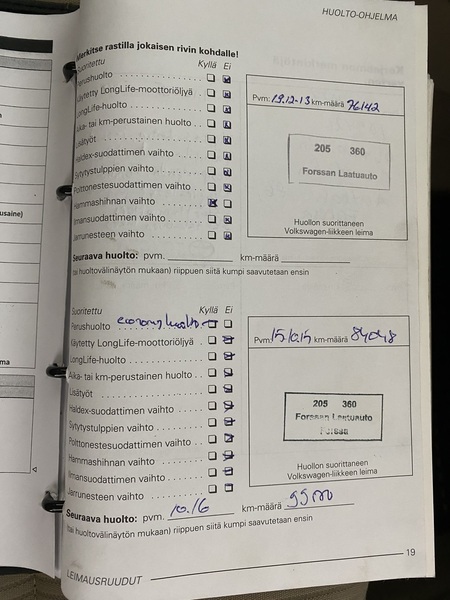 HUOLTO-OHJELMA
Merkitse rastilla jokaisen rivin kohdalle!
Suoritettu Kyllä Ei
Perushuolto
Käytetty LongLife-moottoriöljyä
LongLife-huolto
Aika- tai km-perustainen huolto
Lisätyöt
Haldex-suodattimen vaihto
Sytytystulppien vaihto
Polttonestesuodattimen vaihto
Hammashihnan vaihto
Ilmansuodattimen vaihto
Jarrunesteen vaihto
Pvm: 19.12-13 km-määrä 76142
205 360
Forssan Laatuauto
Huollon suorittaneen
Volkswagen-liikkeen leima
Seuraava huolto: pvm. km-määrä
tai huoltovälinäytön mukaan) riippuen siitä kumpi saavutetaan ensin
Suoritettu Kyllä Ei
Perushuolto economy huolto
Käytetty LongLife-moottoriöljyä
LongLife-huolto
Aika- tai km-perustainen huolto
Lisätyöt
Haldex-suodattimen vaihto
Sytytystulppien vaihto
Polttonestesuodattimen vaihto
Hammashihnan vaihto
Ilmansuodattimen vaihto
Jarrunesteen vaihto
Pvm: 15.10.15 km-määrä 84048
205 360
Forssan Laatuauto
Forssa
Huollon suorittaneen
Volkswagen-liikkeen leima
Seuraava huolto: pvm. 10.16 km-määrä
(tai huoltovälinäytön mukaan) riippuen siitä kumpi saavutetaan ensin
19
LEIMAUSRUUDUT
usaine)
ma